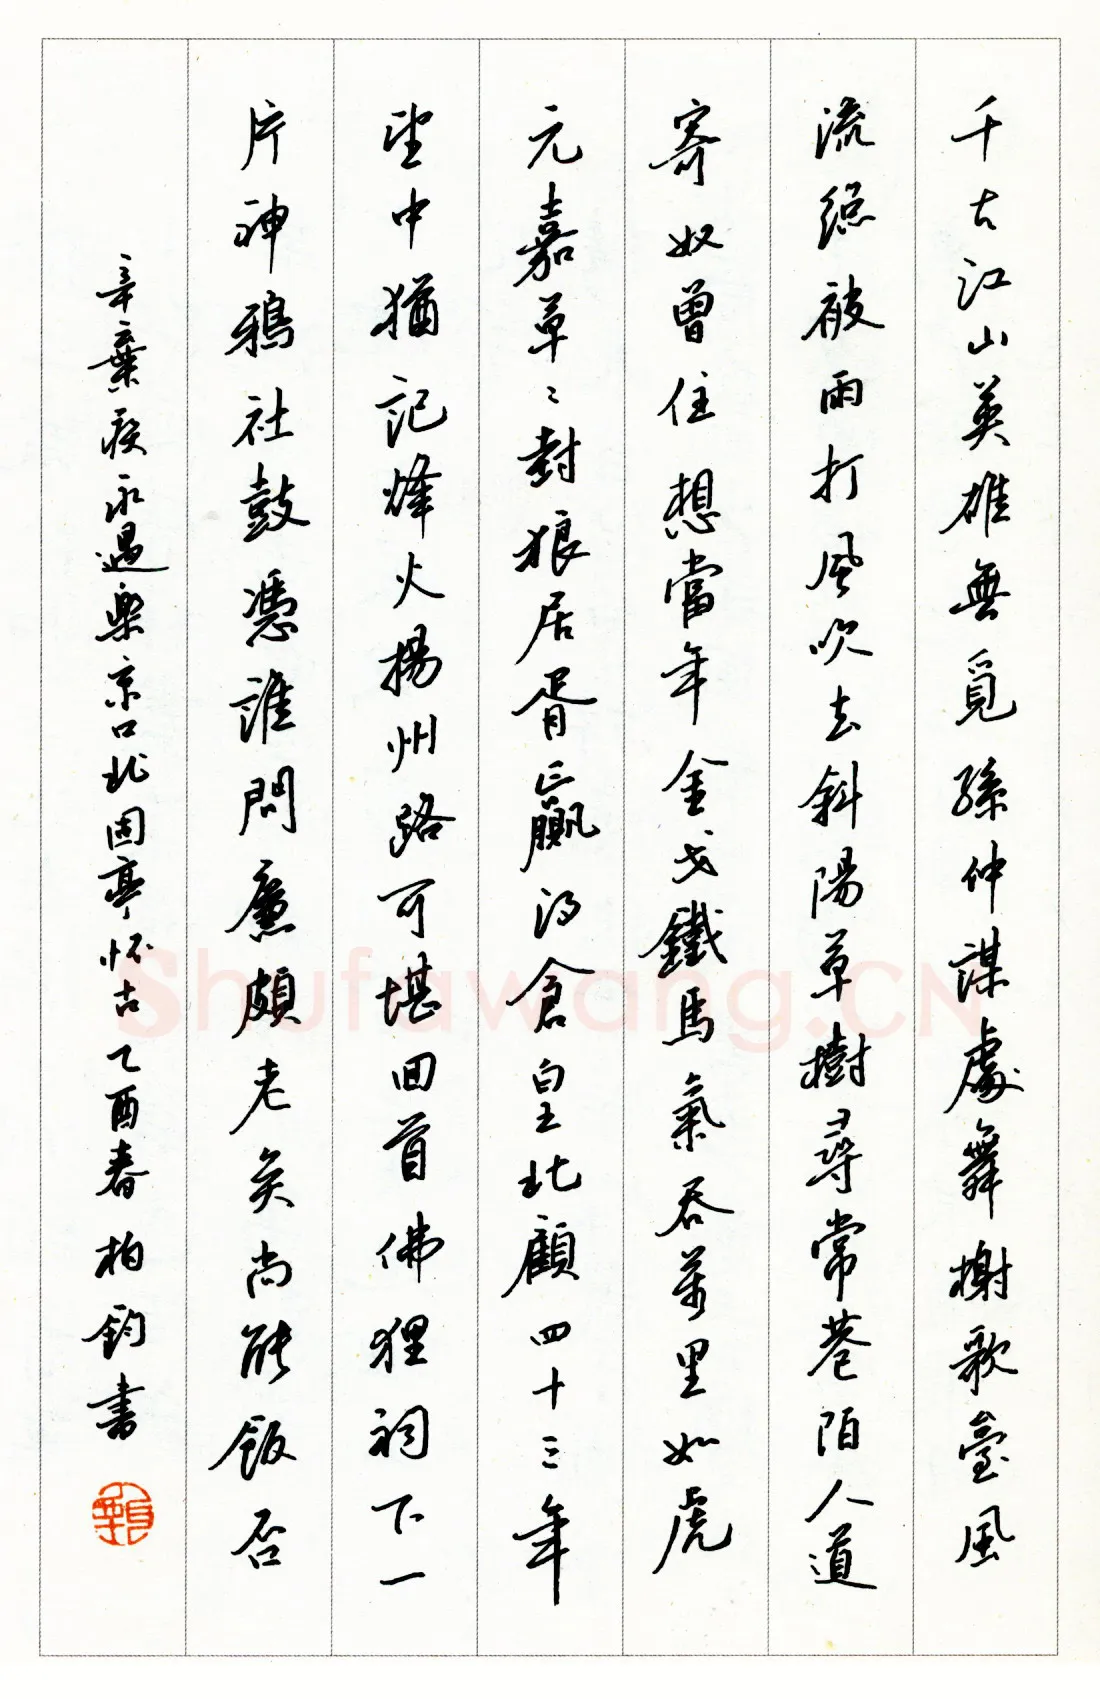 千古江山英雄無覓孫仲謀處舞榭歌臺風
流總被雨打風吹去斜陽草樹尋常巷陌人道
寄奴曾住想當年金戈鐵馬氣吞萬里如虎
元嘉草〻封狼居胥贏得倉皇北顧四十三年
望中猶記烽火揚州路可堪回首佛狸祠下一
片神鴉社鼓憑誰問廉頗老矣尚能飯否
辛棄疾永遇樂京口北固亭怀古 乙酉春柏鈞書
Shufawang.CN